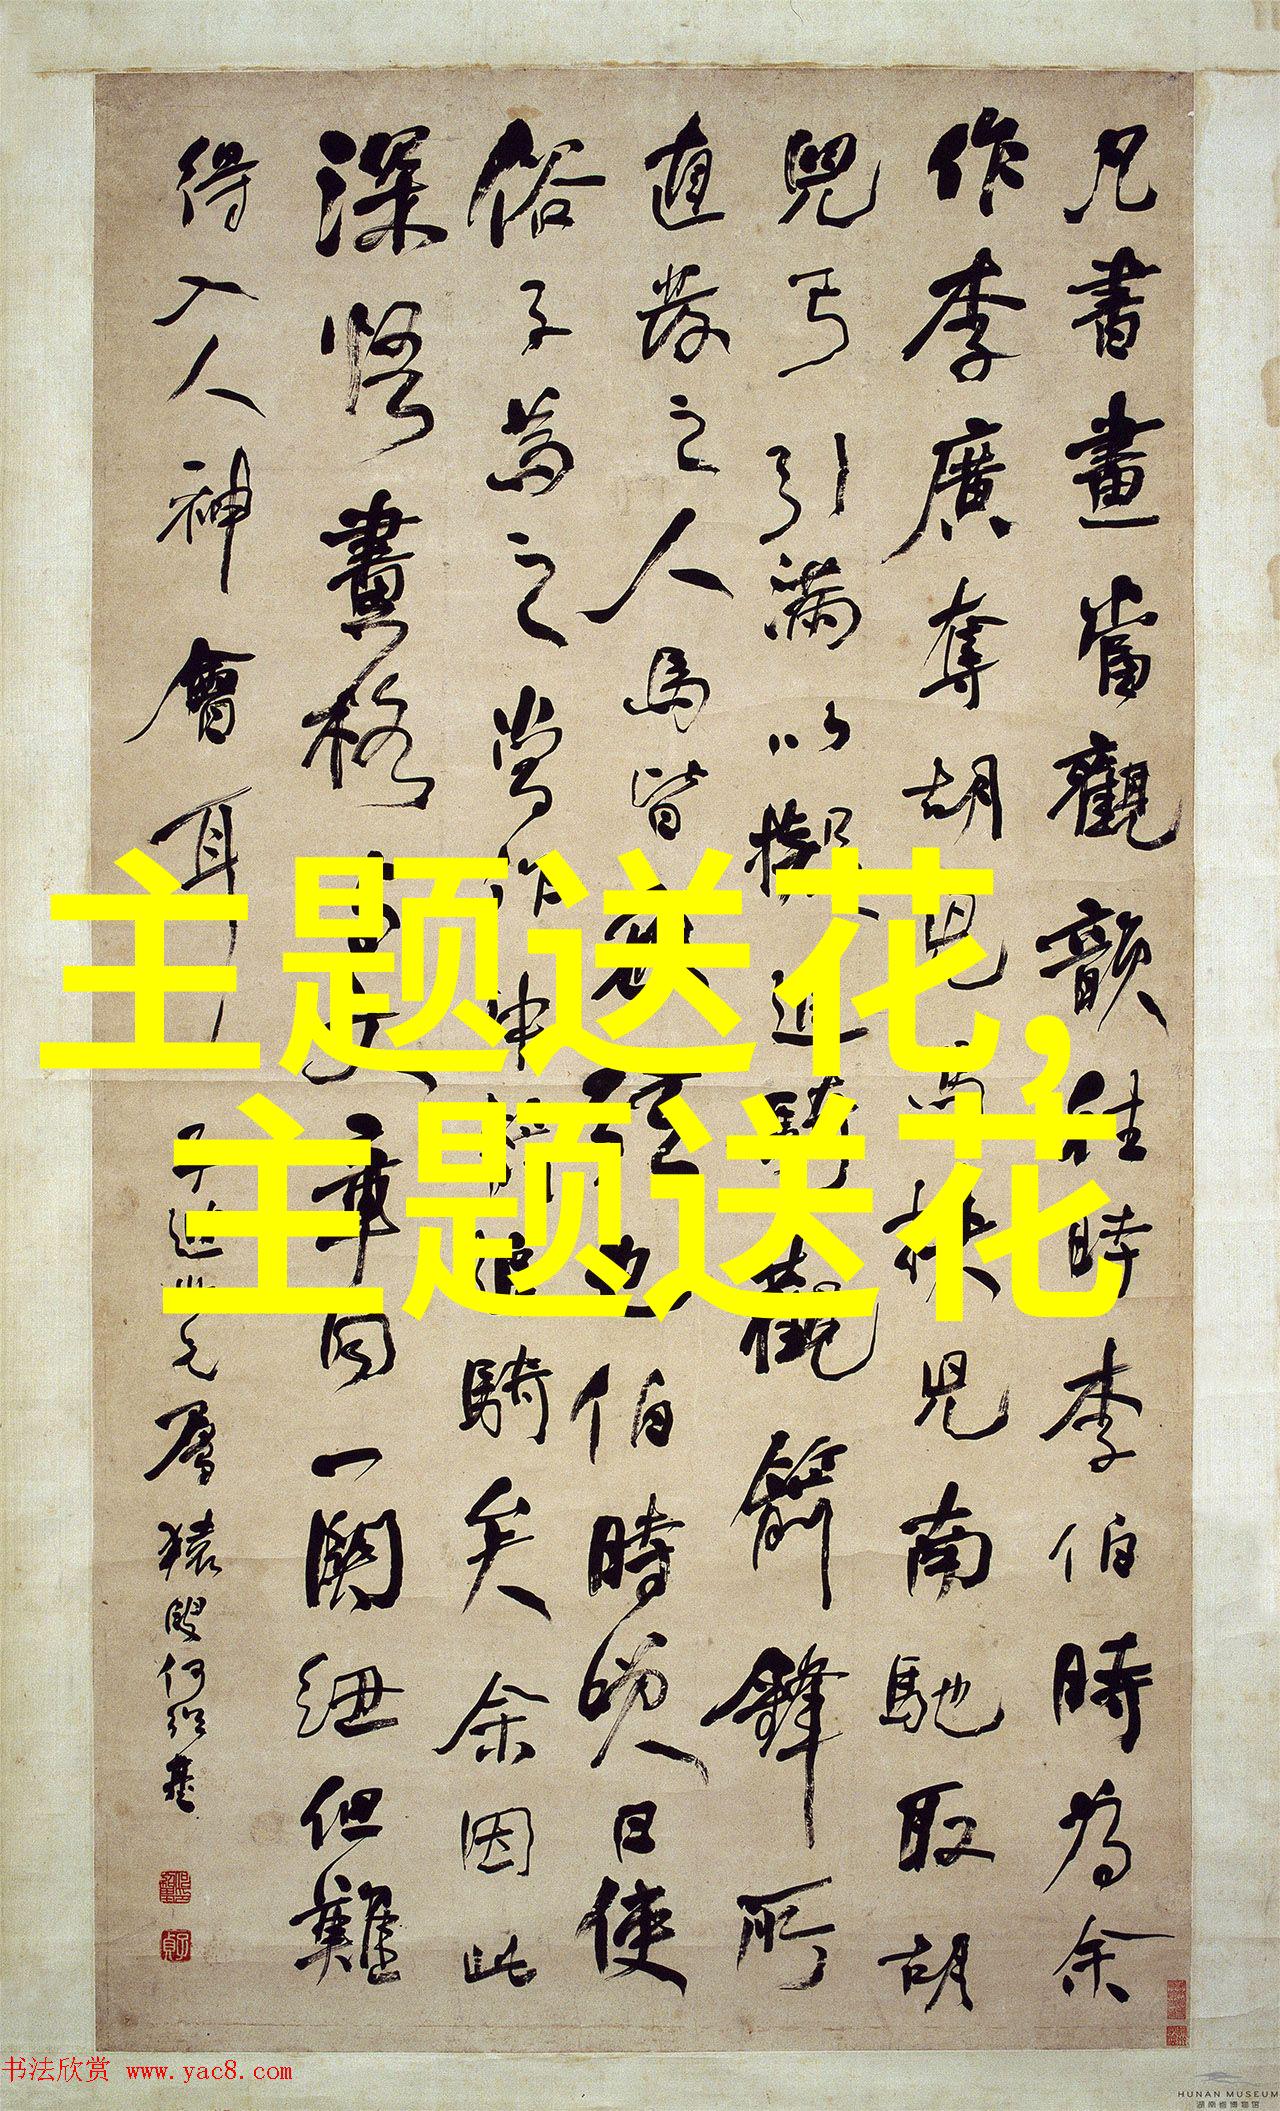 凡書畫當觀韻往時李伯時為余
作李廣奪胡兒馬挾兒南馳取胡
兒弓引滿以擬追騎觀箭鋒所
直發之人馬皆應弦也伯時笑曰使
俗子為之當作中箭追騎矣余因此
深悟畫格此與文章同一關紐但難
得入人神會耳
子延世兄屬 猿叟何紹基
主题送花,
主题送花
书法欣赏 www.yac8.com
HUNAN MUSEUM
湖南省博物馆